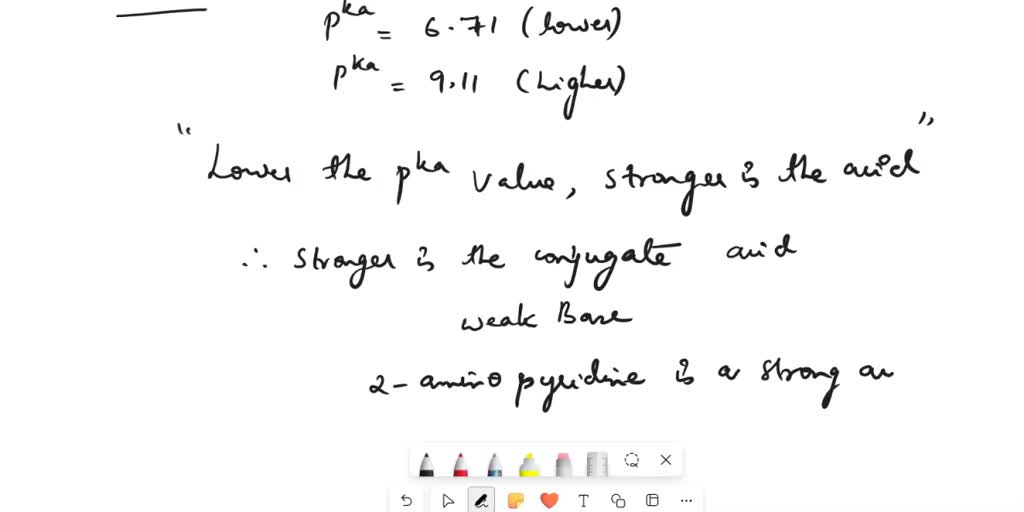 pka = 6.71 (lower)
pka = 9.11 (higher)
"Lower the pka value, stronger is the acid"
∴ stronger is the conjugate acid
weak Base
2-amino pyridine is a strong ac
T